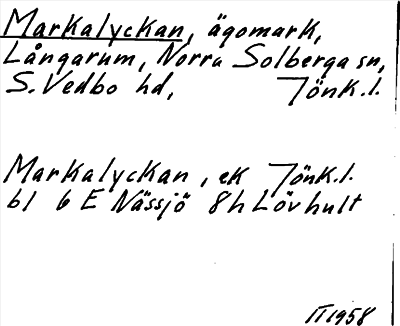 Markalyckan, ägomark,
Långarum, Norra Solberga sn,
S. Vedbo hd, Jönk.l.
Markalyckan, ek Jönk.l.
bl 6 E Nässjö 8h Lövhult
II 1958